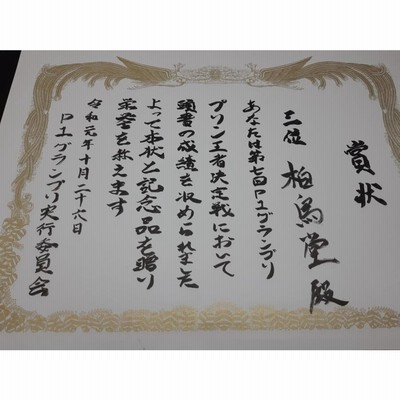 賞状
三位 柏鳥堂殿
あなたは第七回P1グランプリ
プリン王者決定戦において
頭書の成績を収められました
よって本状と記念品を贈り
栄誉を称えます
令和元年十月二十六日
P1グランプリ実行委員会